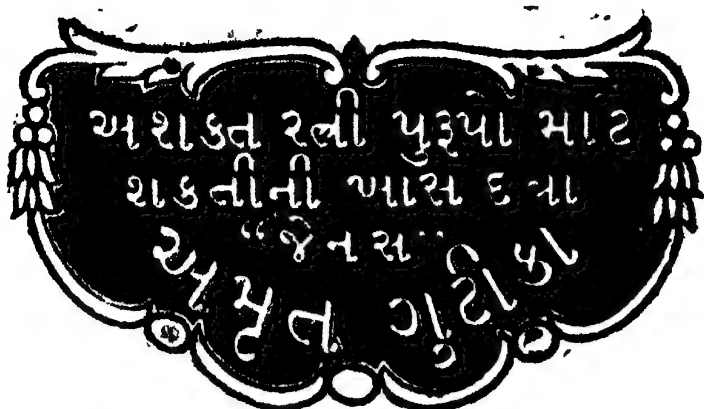 અશક્ત સ્ત્રી પુરૂષો માટે
શક્તીની ખાસ દવા
“જૈનસ”
અમૃત ગુટીકા